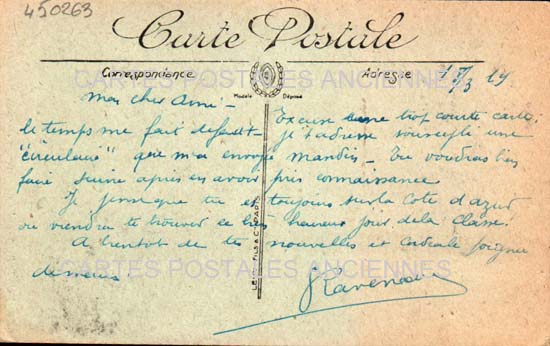 450263
Carte Postale
CARTES POSTALES ANCIENNES
Correspondance
Adresse
Modèle Déposé
17/3 29
mon cher Ami -
Excuse une trop courte carte,
le temps me fait défaut - je t'adresse une
"circulaire" que m'a envoyé - Tu voudras bien
faire suivre après en avoir pris connaissance
Je pense que tu es toujours sur la Cote d'azur
ou viendra te trouver ce très heureux jour de la Classe.
A bientôt de tes nouvelles et cordiale poignée
de mains
CARTES POSTALES ANCIENNES
LEVY FILS & Cie PARIS